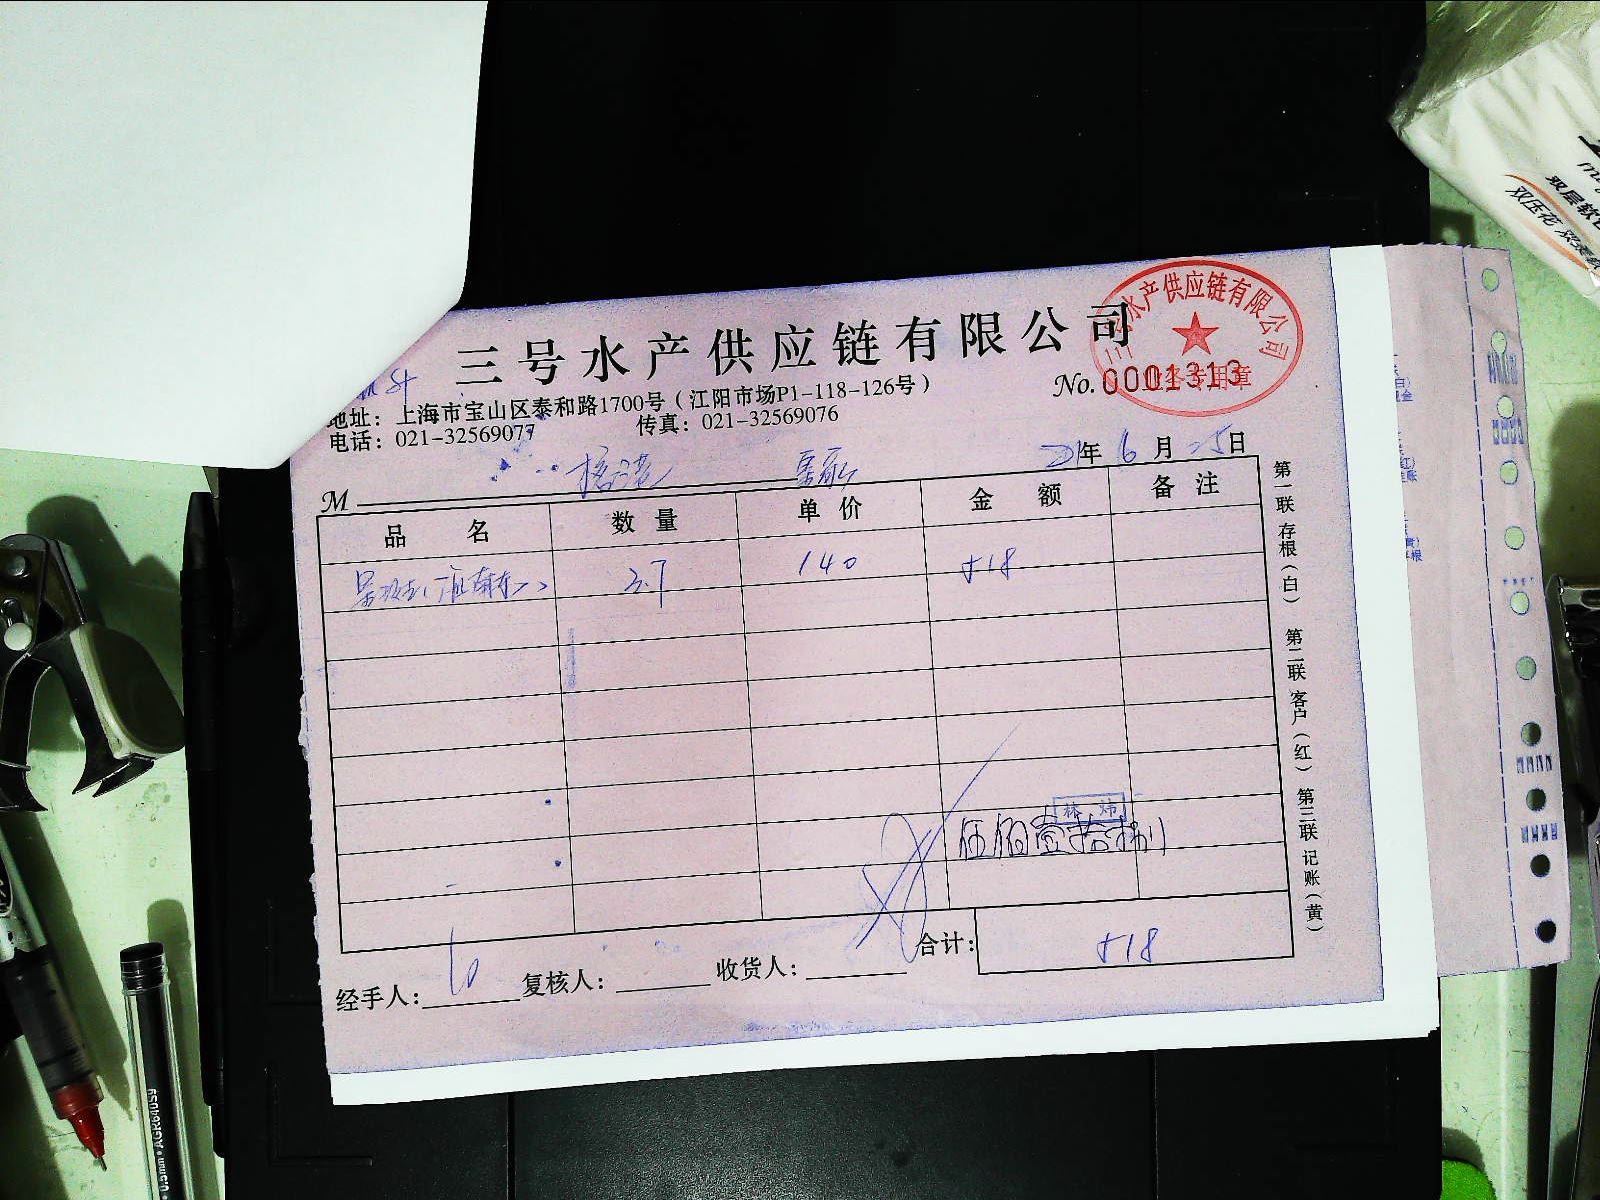 双层软
双压花
三号水产供应链有限公司
水产供应链有限公司
No. 0001313
专用章
地址：上海市宝山区泰和路1700号（江阳市场P1-118-126号）
电话：021-32569077 传真：021-32569076
21年 6月 25日
M
品名 数量 单价 金额 备注
3.7 140 518
林炜
伍佰壹拾捌
合计：518
经手人： 复核人： 收货人：
第一联存根（白） 第二联客户（红） 第三联记账（黄）